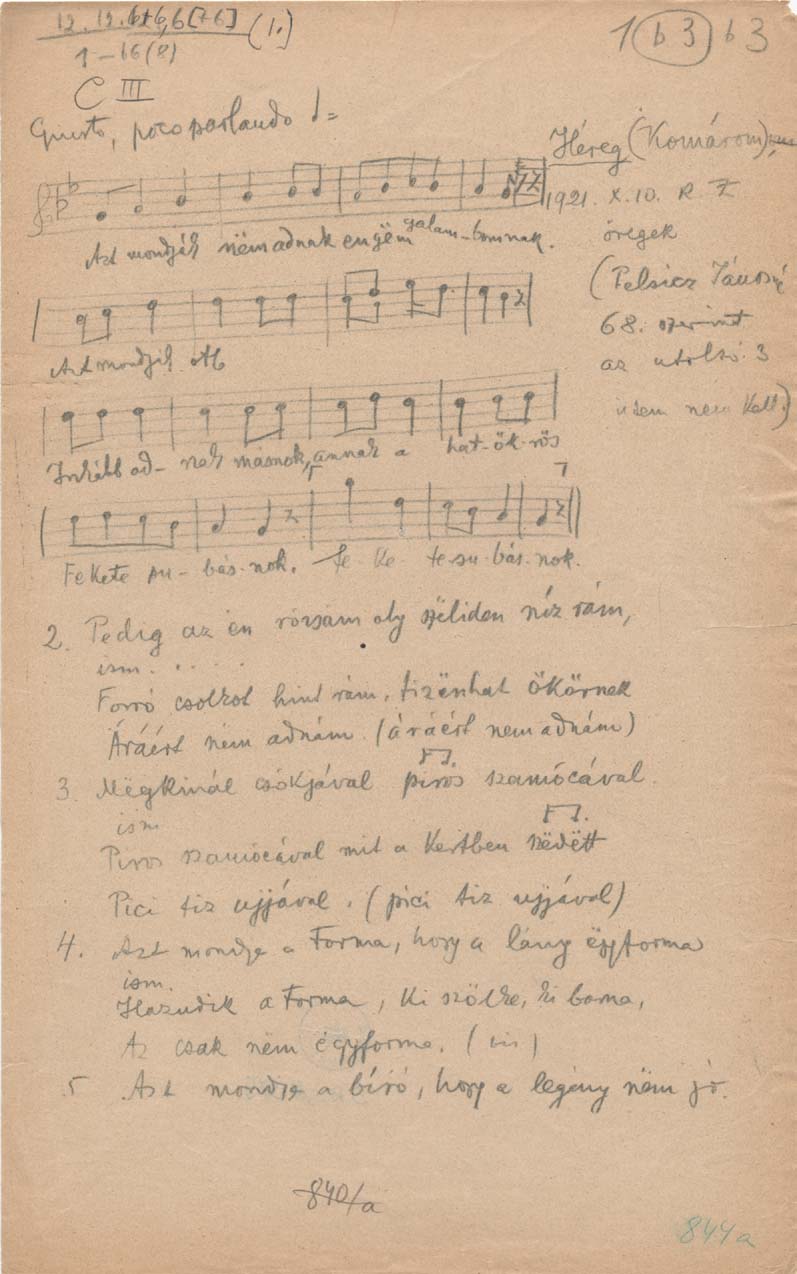 12. 12. 6+6, 6[+6] (1.)
1 – 16(8)
1 b 3 b 3
C III
Giusto, poco parlando ♩=
Héreg (Komárom),
1921. X. 10. R. Z
öregek
(Pelsicz Jánosné
68. szerint
az utolsó 3
ütem nem kell.)
Azt mondják nëm adnak engëm galam-bomnak.
Azt mondják stb
Inkább ad- nak másnak, annak a hat-ök-rös
Fekete su- bás-nak. fe- ke- te-su-bás-nak.
2. Pedig az én rózsám oly szëliden néz rám,
ism. . . . .
Forró csókot hint rám, tizënhat ökörnek
Áráért nëm adnám. (áráért nem adnám)
3. Mëgkinál csókjával piros szamócával.
ism
Piros szamócával mit a kertben szëdëtt
Pici tiz ujjával. (pici tiz ujjával)
4. Azt mondja a Forma, hogy a lány ëgyforma
ism.
Hazudik a Forma, ki szőke, ki barna,
Az csak nëm ëgyforma. (bis)
5 Azt mondja a bíró, hogy a legény nëm jó.
840/a
844a